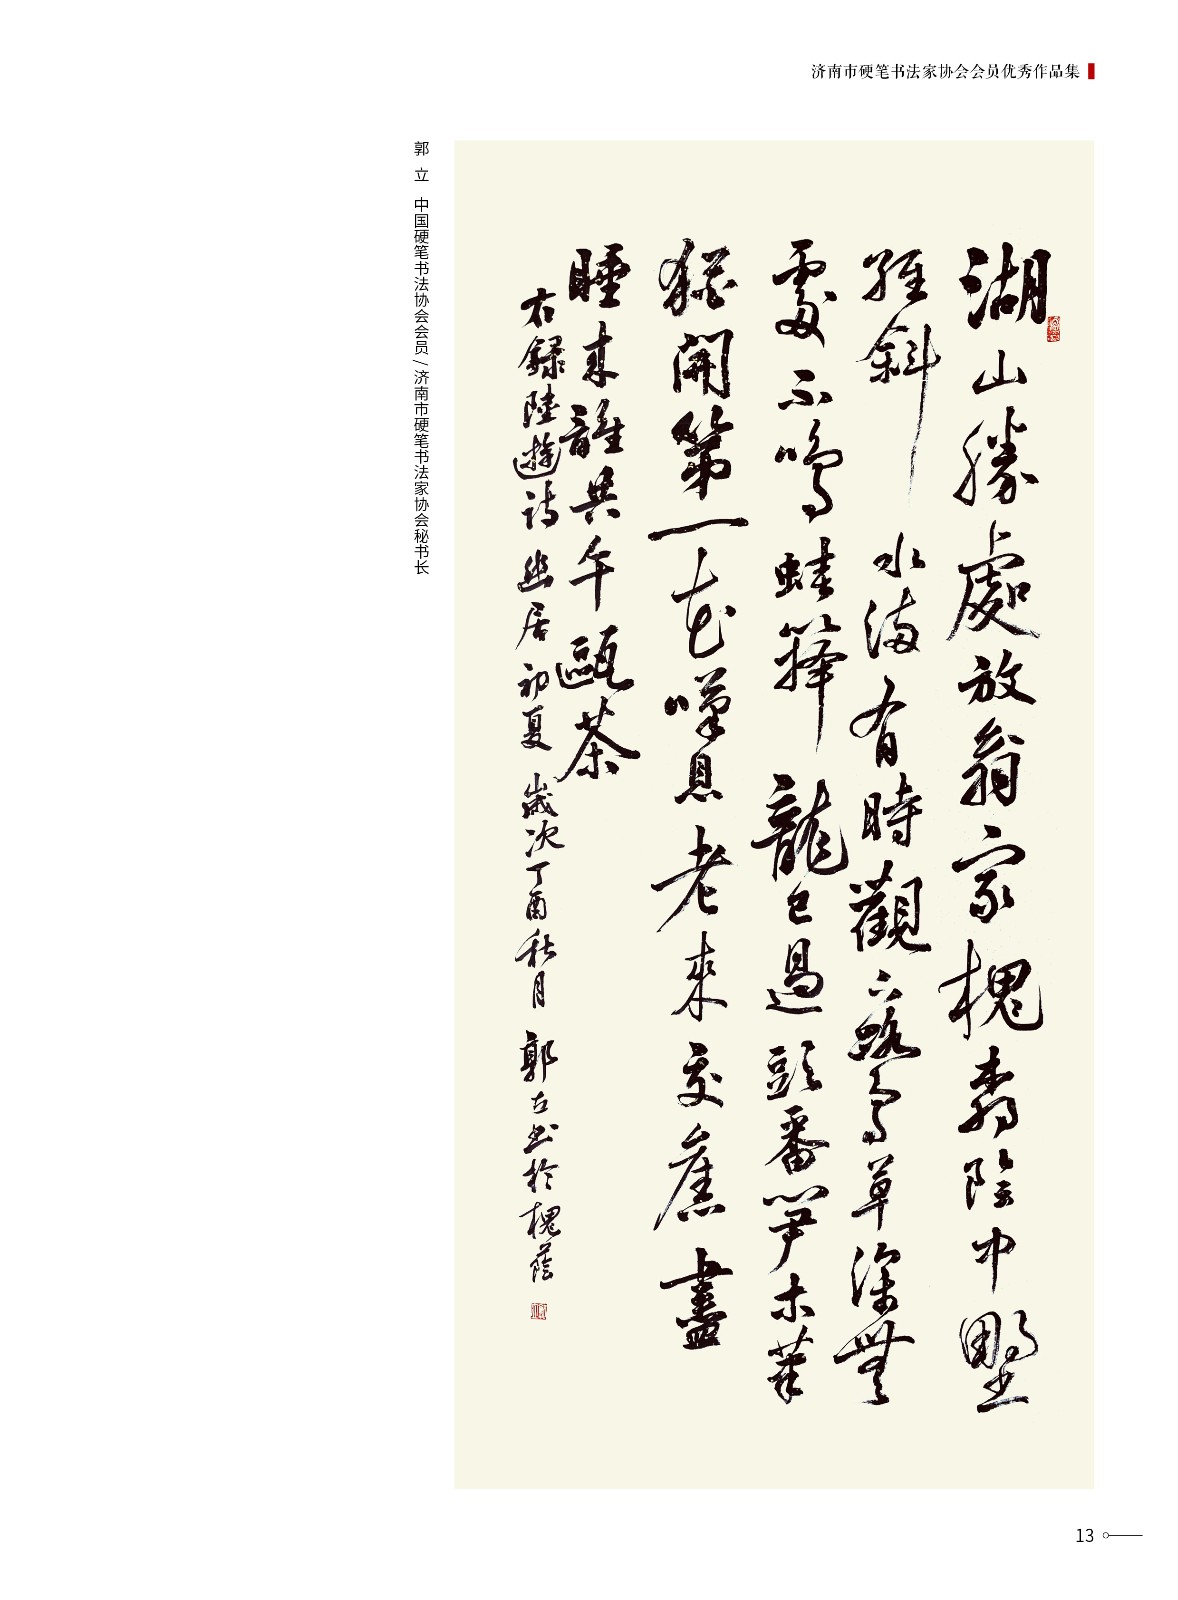 济南市硬笔书法家协会会员优秀作品集
湖山勝處放翁家槐柳陰中野
徑斜水滿有時觀下鷺草深無
處不鳴蛙籜龍已過頭番笋木筆
猶開第一花嘆息老來交舊盡
睡来誰共午甌茶
右録陸遊詩幽居初夏歲次丁酉秋月郭立书於槐蔭
郭立 中国硬笔书法协会会员/济南市硬笔书法家协会秘书长
13